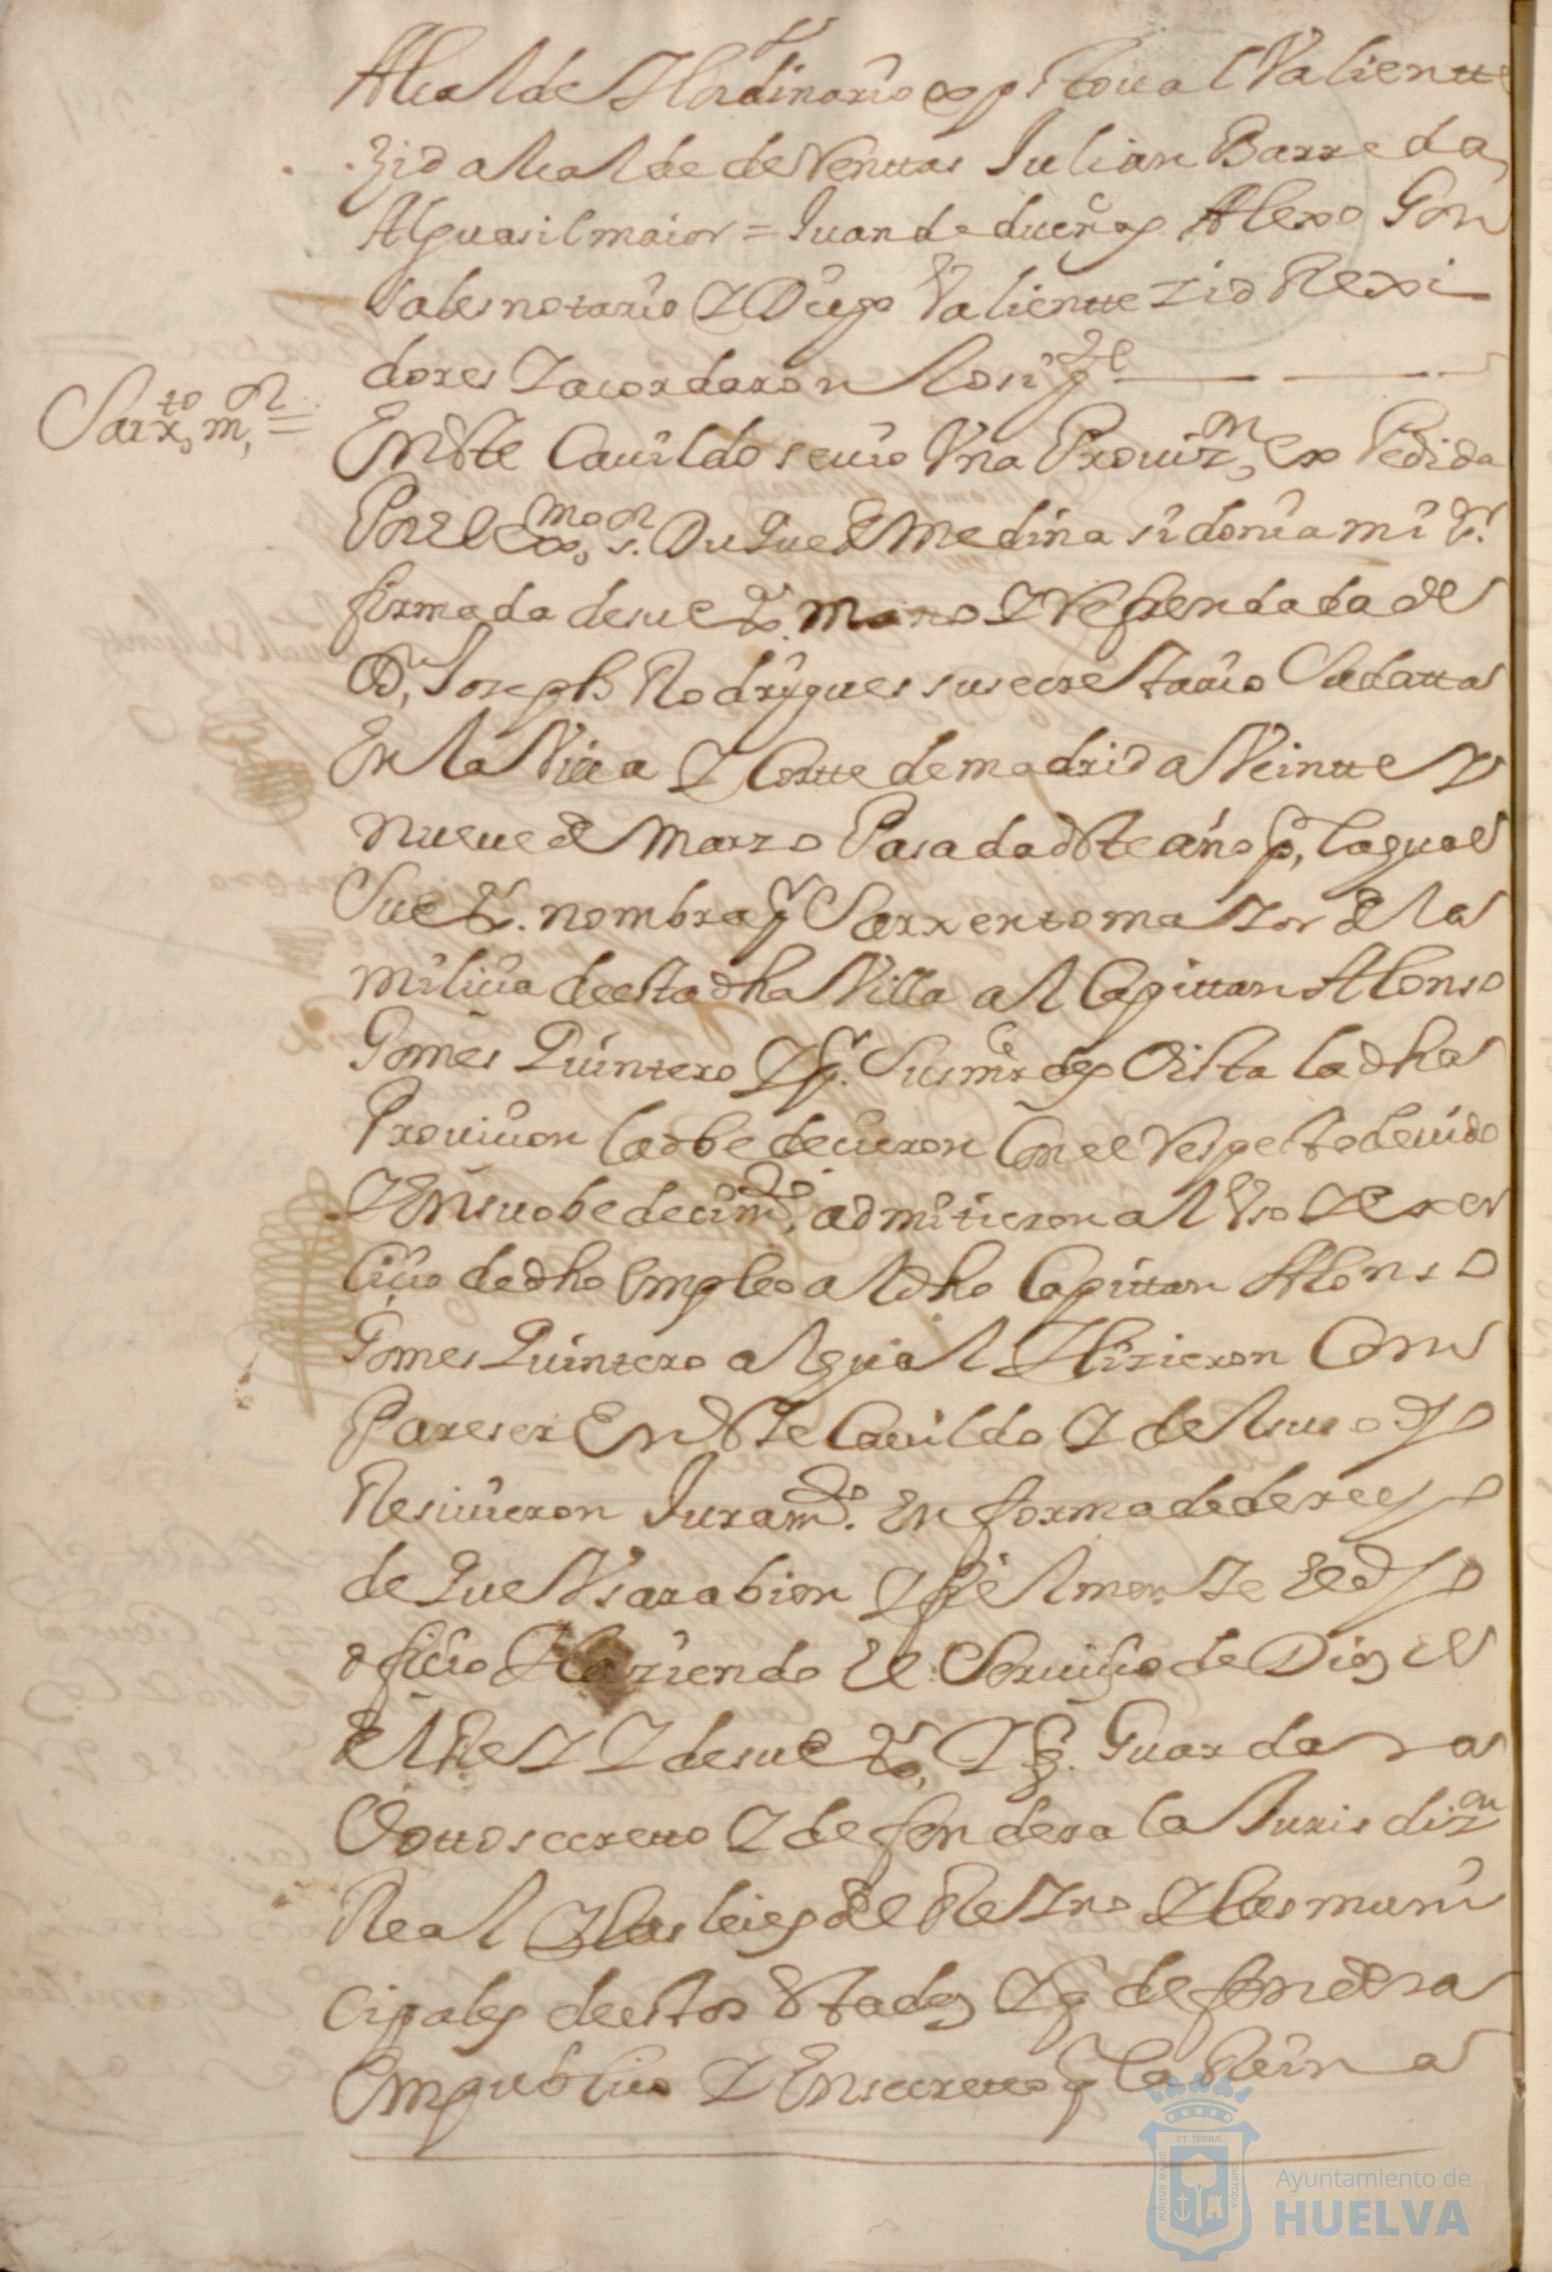 Alcalde Y Hordinario xpstoual Valientte
Zid alcalde de Venttas Julian Barreda
Alguasil maior = Juan de dueñas Alexo Gon
sales notario Y Diego Valientte Zid Rexi
dores Y acordaron lo sigte
Sarxto mr =
En este Cauildo se uio Vna Prouizn expedida
Por el exmo sr. Duque de Medina sidonia mi sr.
firmada de su exa. mano Y Refrendada de
Dn Joseph Rodrigues su secrettario Su datta
En la Villa Y Cortte de madrid a Veintte Y
nueue de Marzo Pasado deste año pr la qual
Su exa. nombra pr Sarxento maYor de la
milicia de esta dha Villa al Capittan Alonso
Gomes Quintero Y pr. Sus mrdes Vista la dha
Prouicion la obedecieron Con el Respecto deuido
Y En su obedecimto, admitieron al Vso Y exer
Cicio de dho Empleo al dho Capittan Alonso
Gomes Quintero al qual Hizieron Com
Pareser En este Cauildo Y del suso dho
Resiuieron Juramto. En forma de derecho
de que Vsara bien Y fielmente el dho
oficio Haziendo el Seruicio de Dios el
del ReY Y de su exa, Y q. Guardara
Votto secretto Y defendera la Jurisdizon
Real Y las leies del ReYno Y las muni
cipales de estos estados Y q defendera
En publico Y En secretto q la Reina
ET TERRÆ
PORTUS MARIS
CUSTODIA
Ayuntamiento de
HUELVA